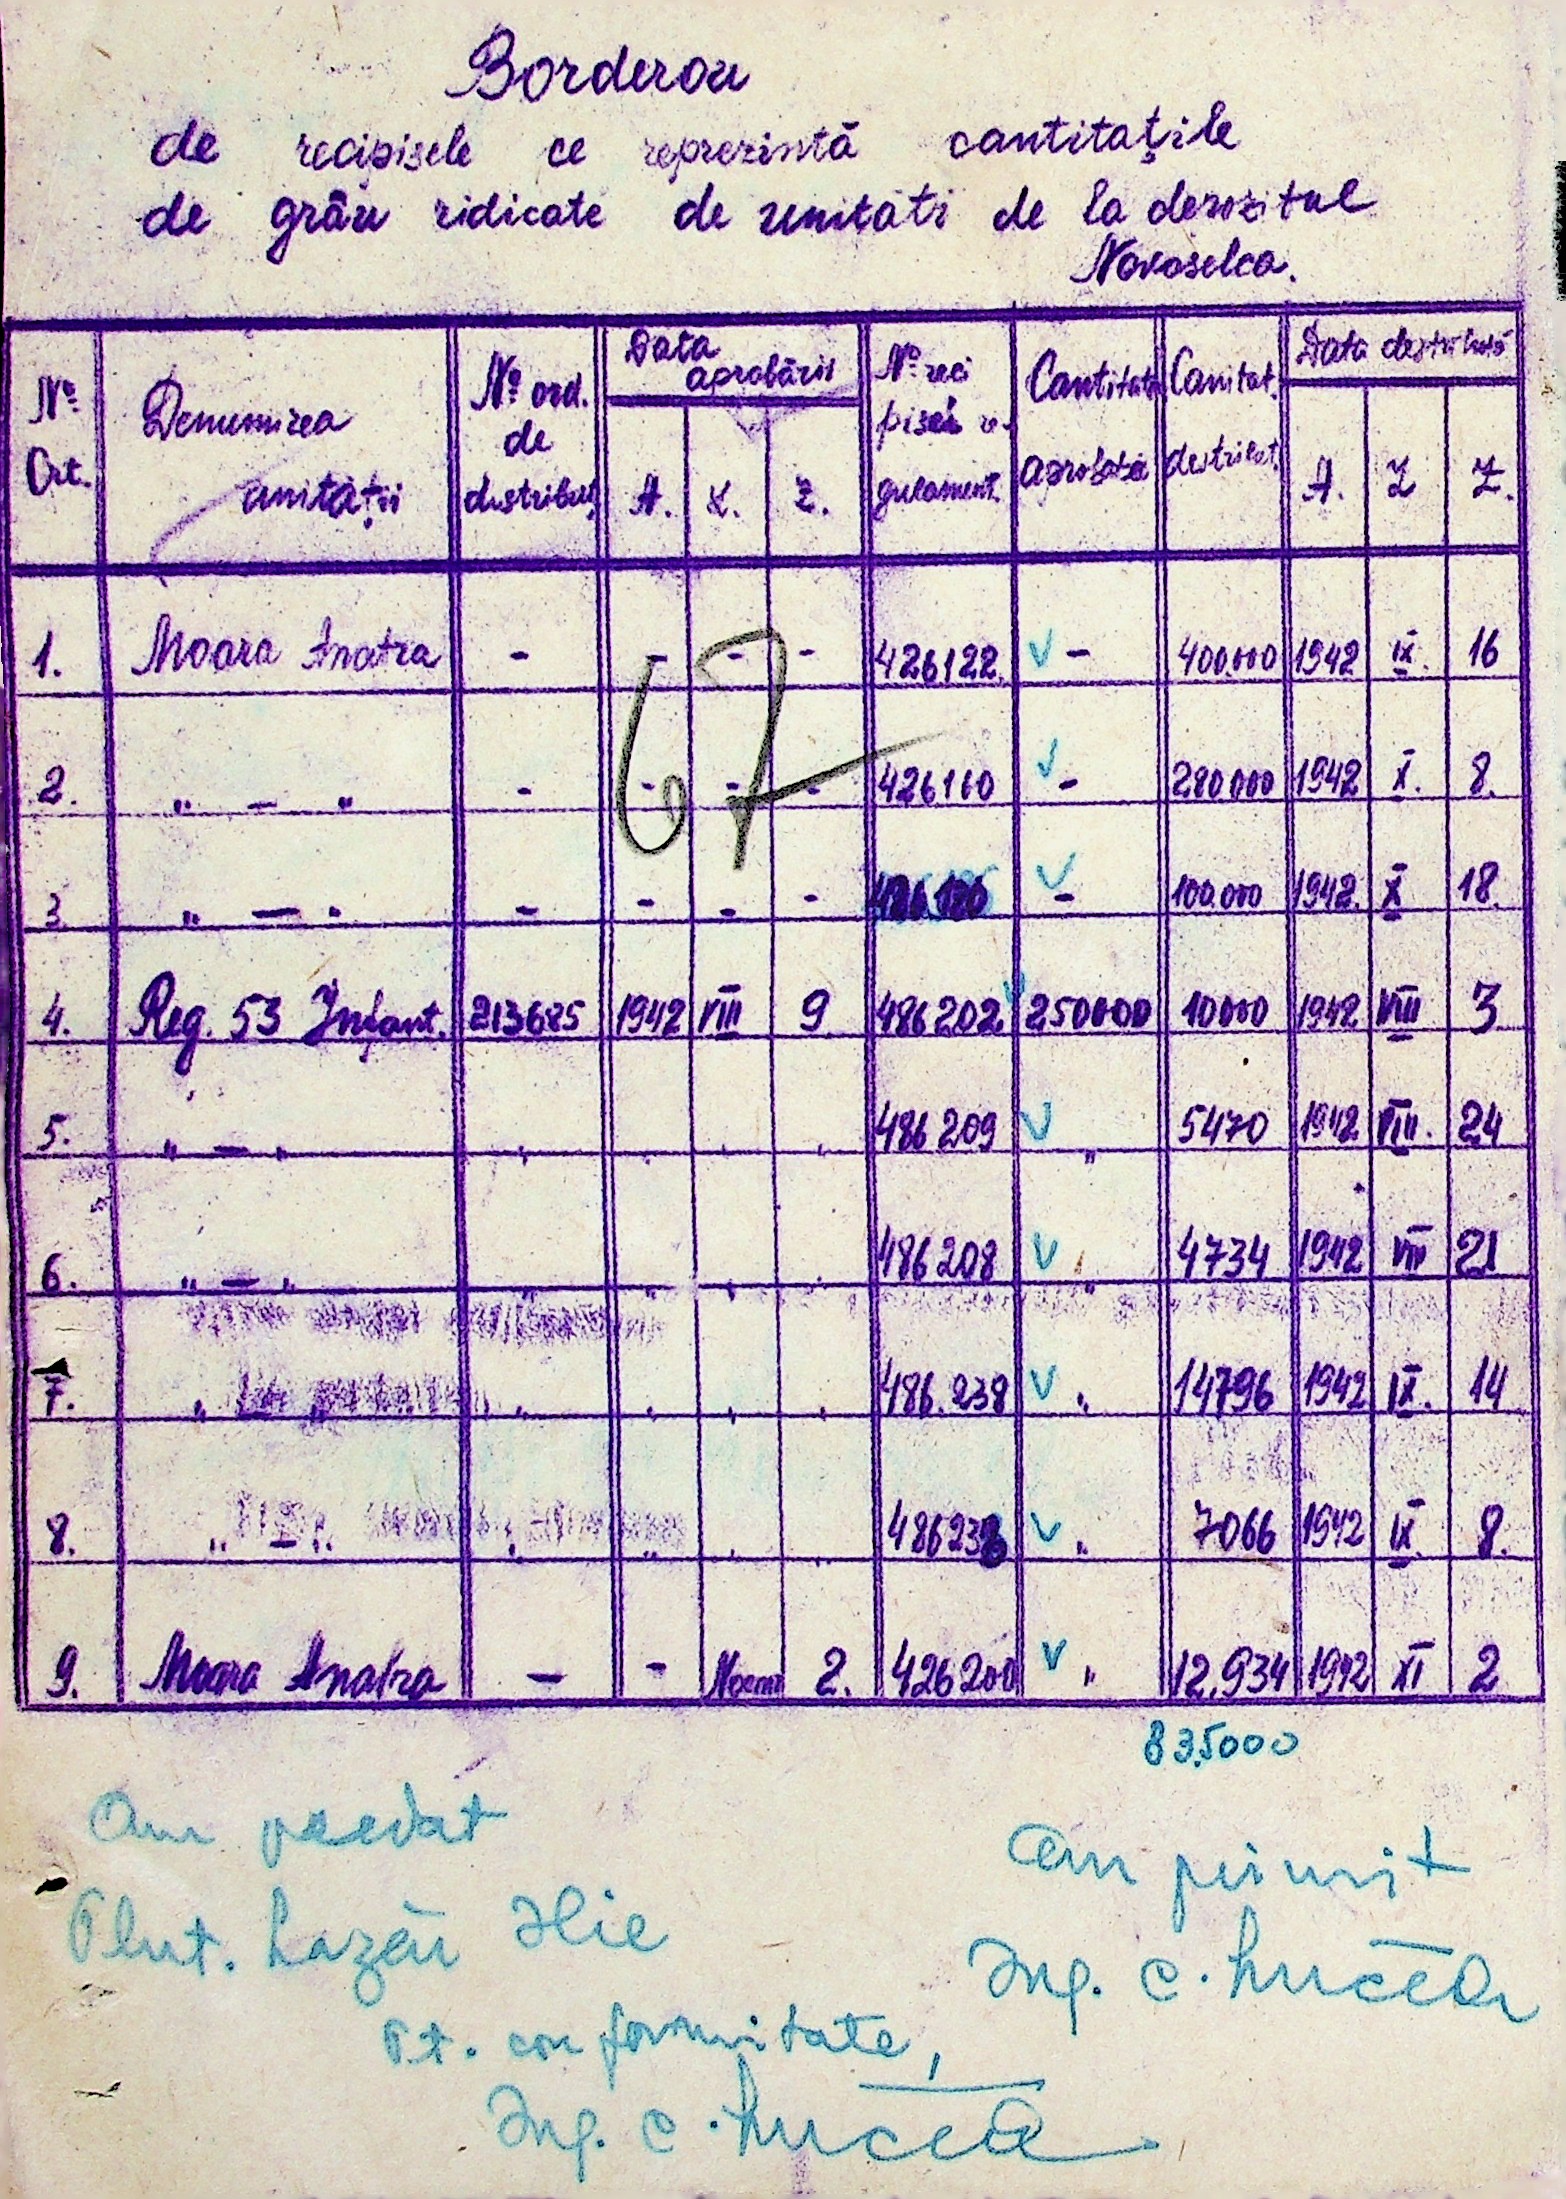 Borderou
de recipisele ce reprezintă cantitațile
de grâu ridicate de unitati de la depozitul
Novoselca.
Nº Crt. Denumirea unitații Nº ord. de distribuț. Data aprobării A. L. Z. Nº reci pisei r. gulament. Cantitatea aprobată Cantitat. destribut. Data destribută A. L Z.
1. Moara Anatra - - - - 426122. V - 400.000 1942 IX. 16
2. " — " - - - - 426160 V - 280000 1942 X. 8.
3. " — " - - - - V - 100.000 1942. X 18.
4. Reg. 53 Infant. 213685 1942 VIII 9 486202 V 250000 10000 1942 VIII 3
5. " — " " " " " 486209 V " 5470 1942 VIII. 24
6. " — " " " " " 486208 V " 4734 1942 VIII 21
7. " — " " " " " 486.238 V " 14796 1942 IX. 14
8. " — " " " " " V " 7066 1942 IX 8.
9. Moara Anatra — - Noem 2. 426200 V " 12.934 1942 XI 2
67
835000
Am predat
Plut. Lazăr Ilie
Am primit
Ing. C.
Pt. conformitate,
Ing. C.